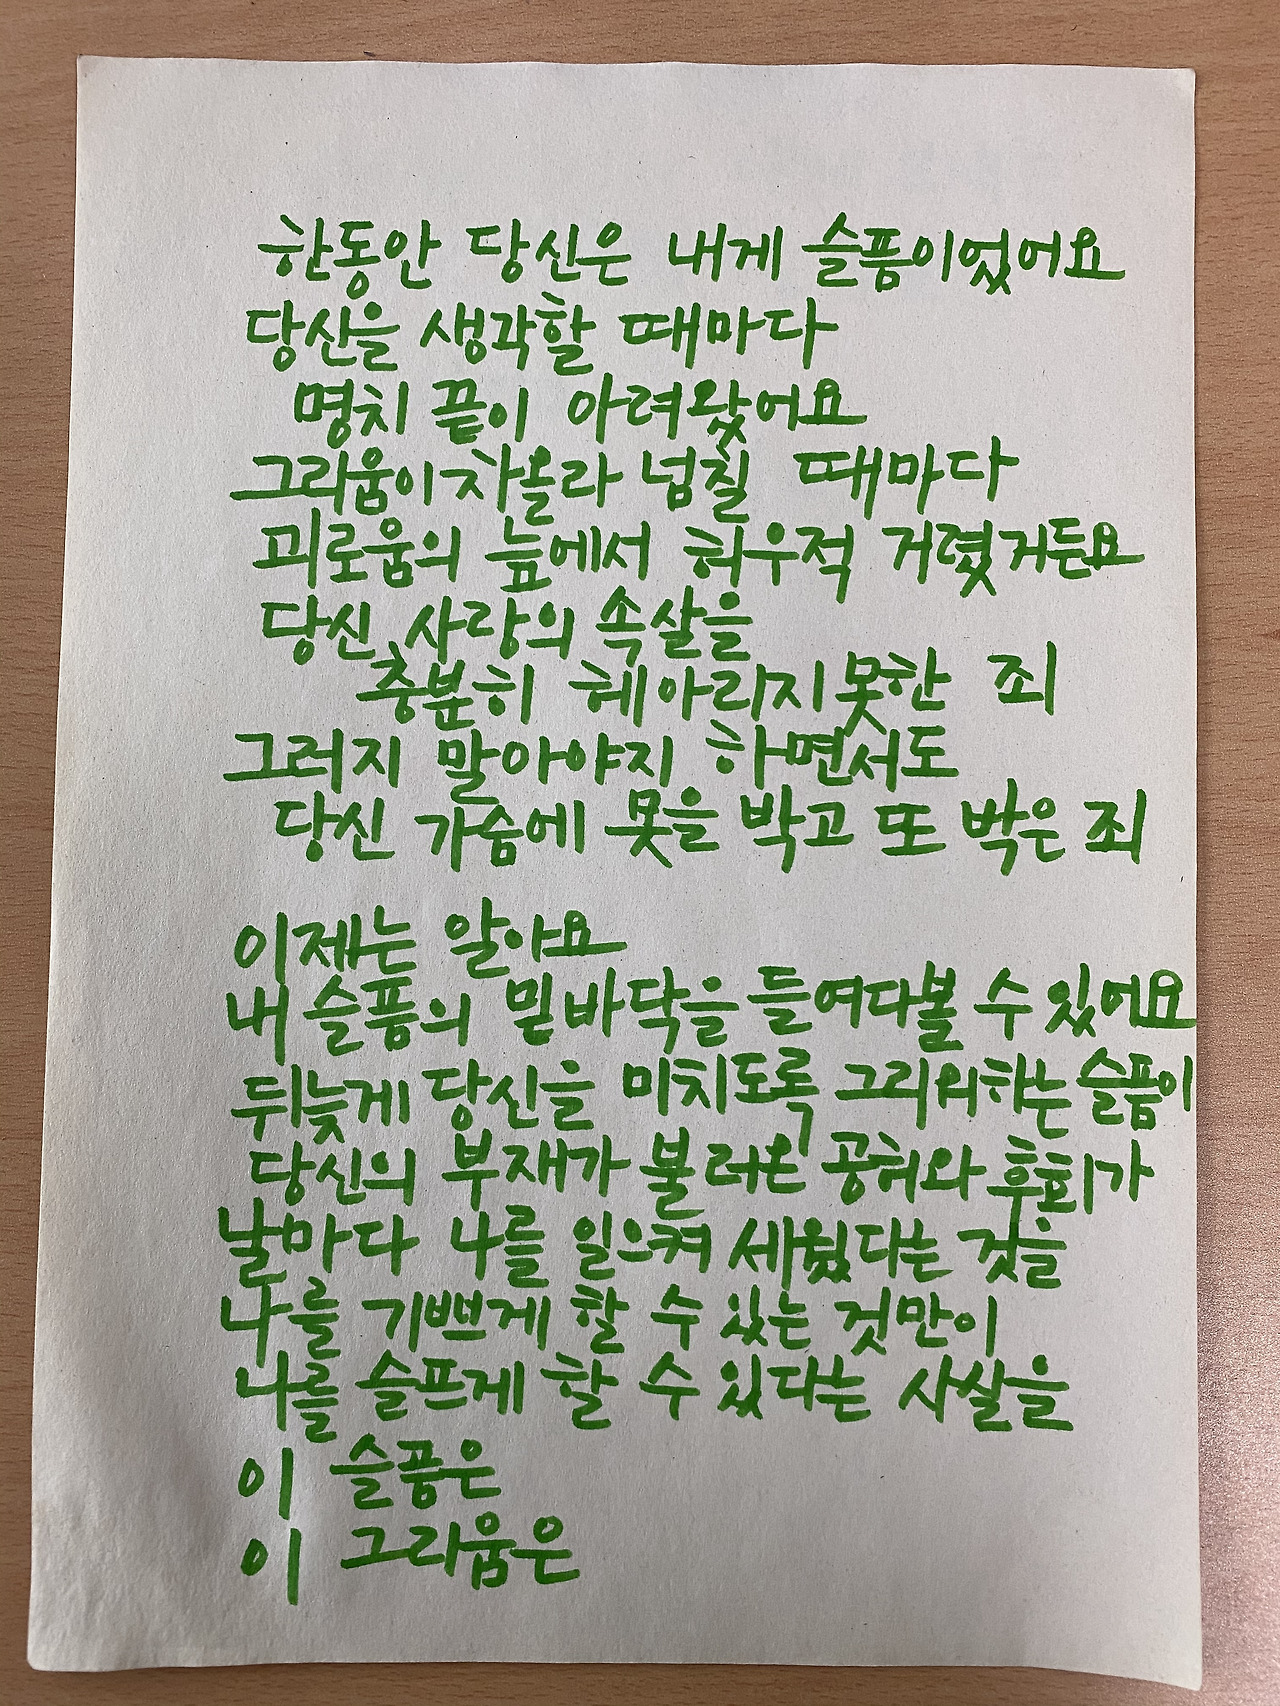 한동안 당신은 내게 슬픔이었어요
당신을 생각할 때마다
명치 끝이 아려왔어요
그리움이 차올라 넘칠 때마다
괴로움의 늪에서 허우적 거렸거든요
당신 사랑의 속살을
충분히 헤아리지 못한 죄
그러지 말아야지 하면서도
당신 가슴에 못을 박고 또 박은 죄
이제는 알아요
내 슬픔의 밑바닥을 들여다볼 수 있어요
뒤늦게 당신을 미치도록 그리워하는 슬픔이
당신의 부재가 불러온 공허와 후회가
날마다 나를 일으켜 세웠다는 것을
나를 기쁘게 할 수 있는 것만이
나를 슬프게 할 수 있다는 사실을
이 슬픔은
이 그리움은